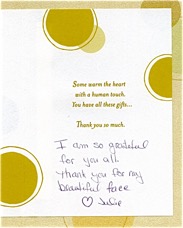 Some warm the heart
with a human touch.
You have all these gifts...
Thank you so much.
I am so grateful
for you all
Thank you for my
beautiful face
♡ Julie